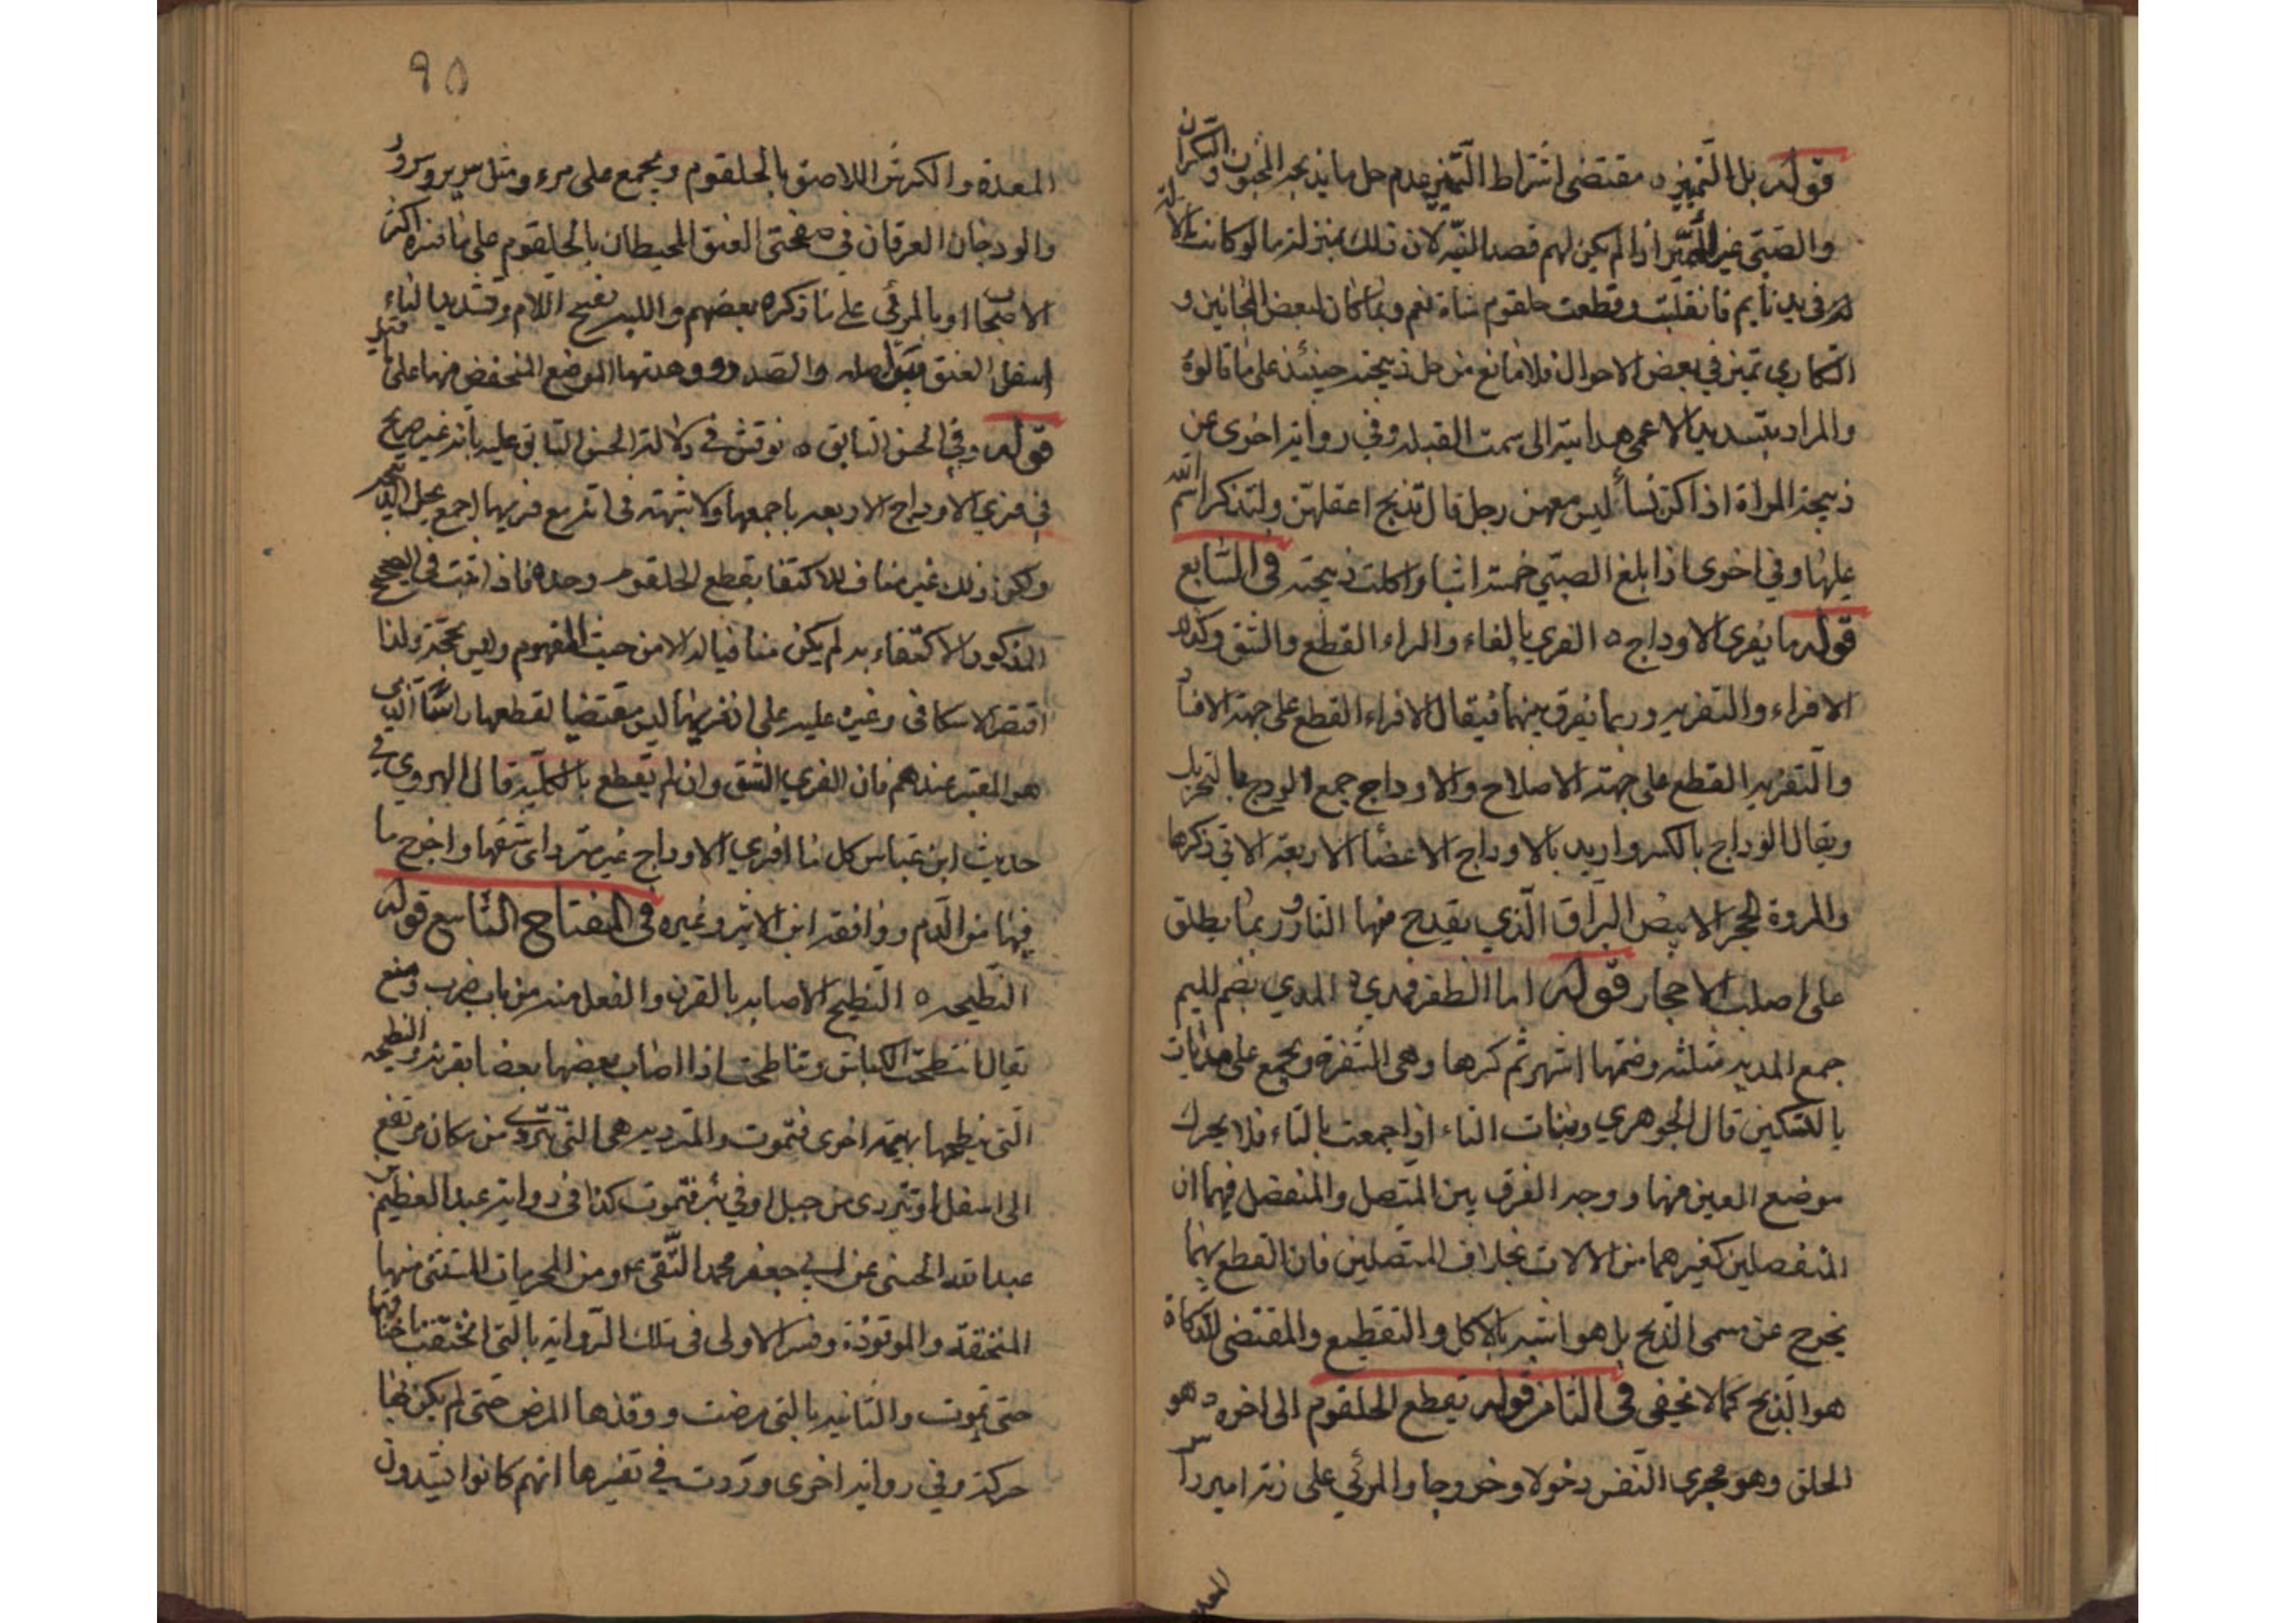 قوله بل التميز ه مقتضى اشتراط التميز عدم حل ما يذبحه المجنون والسكران
والصبي غير المميز اذا لم يكن لهم قصد النية لان ذلك بمنزلة ما لو كانت الالة
له في يد نايم فانقلبت وقطعت حلقوم شاة نعم ربما كان لبعض المجانين و
السكارى تميز في بعض الاحوال فلا مانع من حل ذبيحته حينئذ على ما قالوه
والمراد بتسديد الاعمى هدايته الى سمت القبله وفي رواية اخرى عن
ذبيحة المراة اذا كن نسأ ليس معهن رجل قال تذبح اعقلهن ولتذكر اسم الله
عليها وفي اخرى اذا بلغ الصبي خمسة اشبار اكلت ذبيحته في السابع
قوله ما يفرى الاوداج ه الفري بالفاء والراء القطع والشق وكذا
الافراء والتفريه وربما يفرق بينهما فيقال الافراء القطع على جهة الافساد
والتفريه القطع على جهة الاصلاح والاوداج جمع الودج بالتحريك
ويقال الوداج بالكسر واريد بالاوداج الاعضأ الاربعة الاتي ذكرها
والمروة الحجر الابيض البراق الذي يقدح منها النار وربما يطلق
على اصلب الاحجار قوله اما الظفر فمدي ه المدي بضم الميم
جمع المديه مثلثه وضمها اشهر ثم كسرها وهي الشفرة ويجمع على مديات
بالتسكين قال الجوهري وبنات الياء اذا جمعت بالتاء فلا يحرك
موضع العين منها ووجه الفرق بين المتصل والمنفصل فيهما ان
المنفصلين كغيرهما من الالات بخلاف المتصلين فان القطع بهما
يخرج عن مسمى الذبح بل هو اشبه بالاكل والتقطيع والمقتضي للذكاة
هو الذبح كما لا يخفى في الثامن قوله يقطع الحلقوم الى اخره ه هو
الحلق وهو مجرى النفس دخولا وخروجا والمرئي على زنة امير رأس
المعدة
٩٥
المعدة والكرش اللاصق بالحلقوم ويجمع على مرء ومثل سرير وسرر
والودجان العرقان في صفحتي العنق المحيطان بالحلقوم على ما فسره اكثر
الاصحاب او بالمرئي على ما ذكره بعضهم واللبه بفتح اللام وتشديد الباء
اسفل العنق بين اصله والصدر ووهدتها الموضع المنخفض منها على ما قيل
قوله وفي الحسن السابق ه نوقش في دلالة الحسن السابق عليه بانه غير صريح
في فري الاوداج الاربعه باجمعها ولا شبهة في انه مع فريها اجمع يحل الذبيحه
ولكن ذلك غير مناف للاكتفا بقطع الحلقوم وحده فاذا ثبت في الصحيح
المذكور الاكتفاء به لم يكن منافيا له الا من حيث المفهوم وليس بحجة ولذا
اقتصر الاسكافي وغيره عليه على ان فريهما ليس مقتضيا لقطعهما راسا الذي
هو المعتبر عندهم فان الفري الشق وان لم يقطع بالكلية قال الهروي في
حديث ابن عباس كل ما افرى الاوداج غير مترد اى شقها واخرج ما
فيها من الدم ووافقه ابن الاثير وغيره في المفتاح التاسع قوله
النطيحه ه النطيح الاصابه بالقرن والفعل منه من باب ضرب ومنع
يقال انتطحت الكباش وتناطحت اذا اصاب بعضها بعضا بقرنه والنطيحه
التي ينطحها بهيمة اخرى فتموت والمترديه هي التي تتردى من مكان مرتفع
الى اسفل او تتردى من جبل او في بئر فتموت كذا في رواية عبد العظيم بن
عبد الله الحسنى عن ابي جعفر محمد التقي ع ومن المحرمات المستثنى منها
المنخنقه والموقوذة وفسر الاولى في تلك الرواية بالتي انخنقت باخناقها
حتى تموت والثانيه بالتي مرضت ووقذها المرض حتى لم يكن بها
حركة وفي رواية اخرى وردت في تفسيرها انهم كانوا يشدون